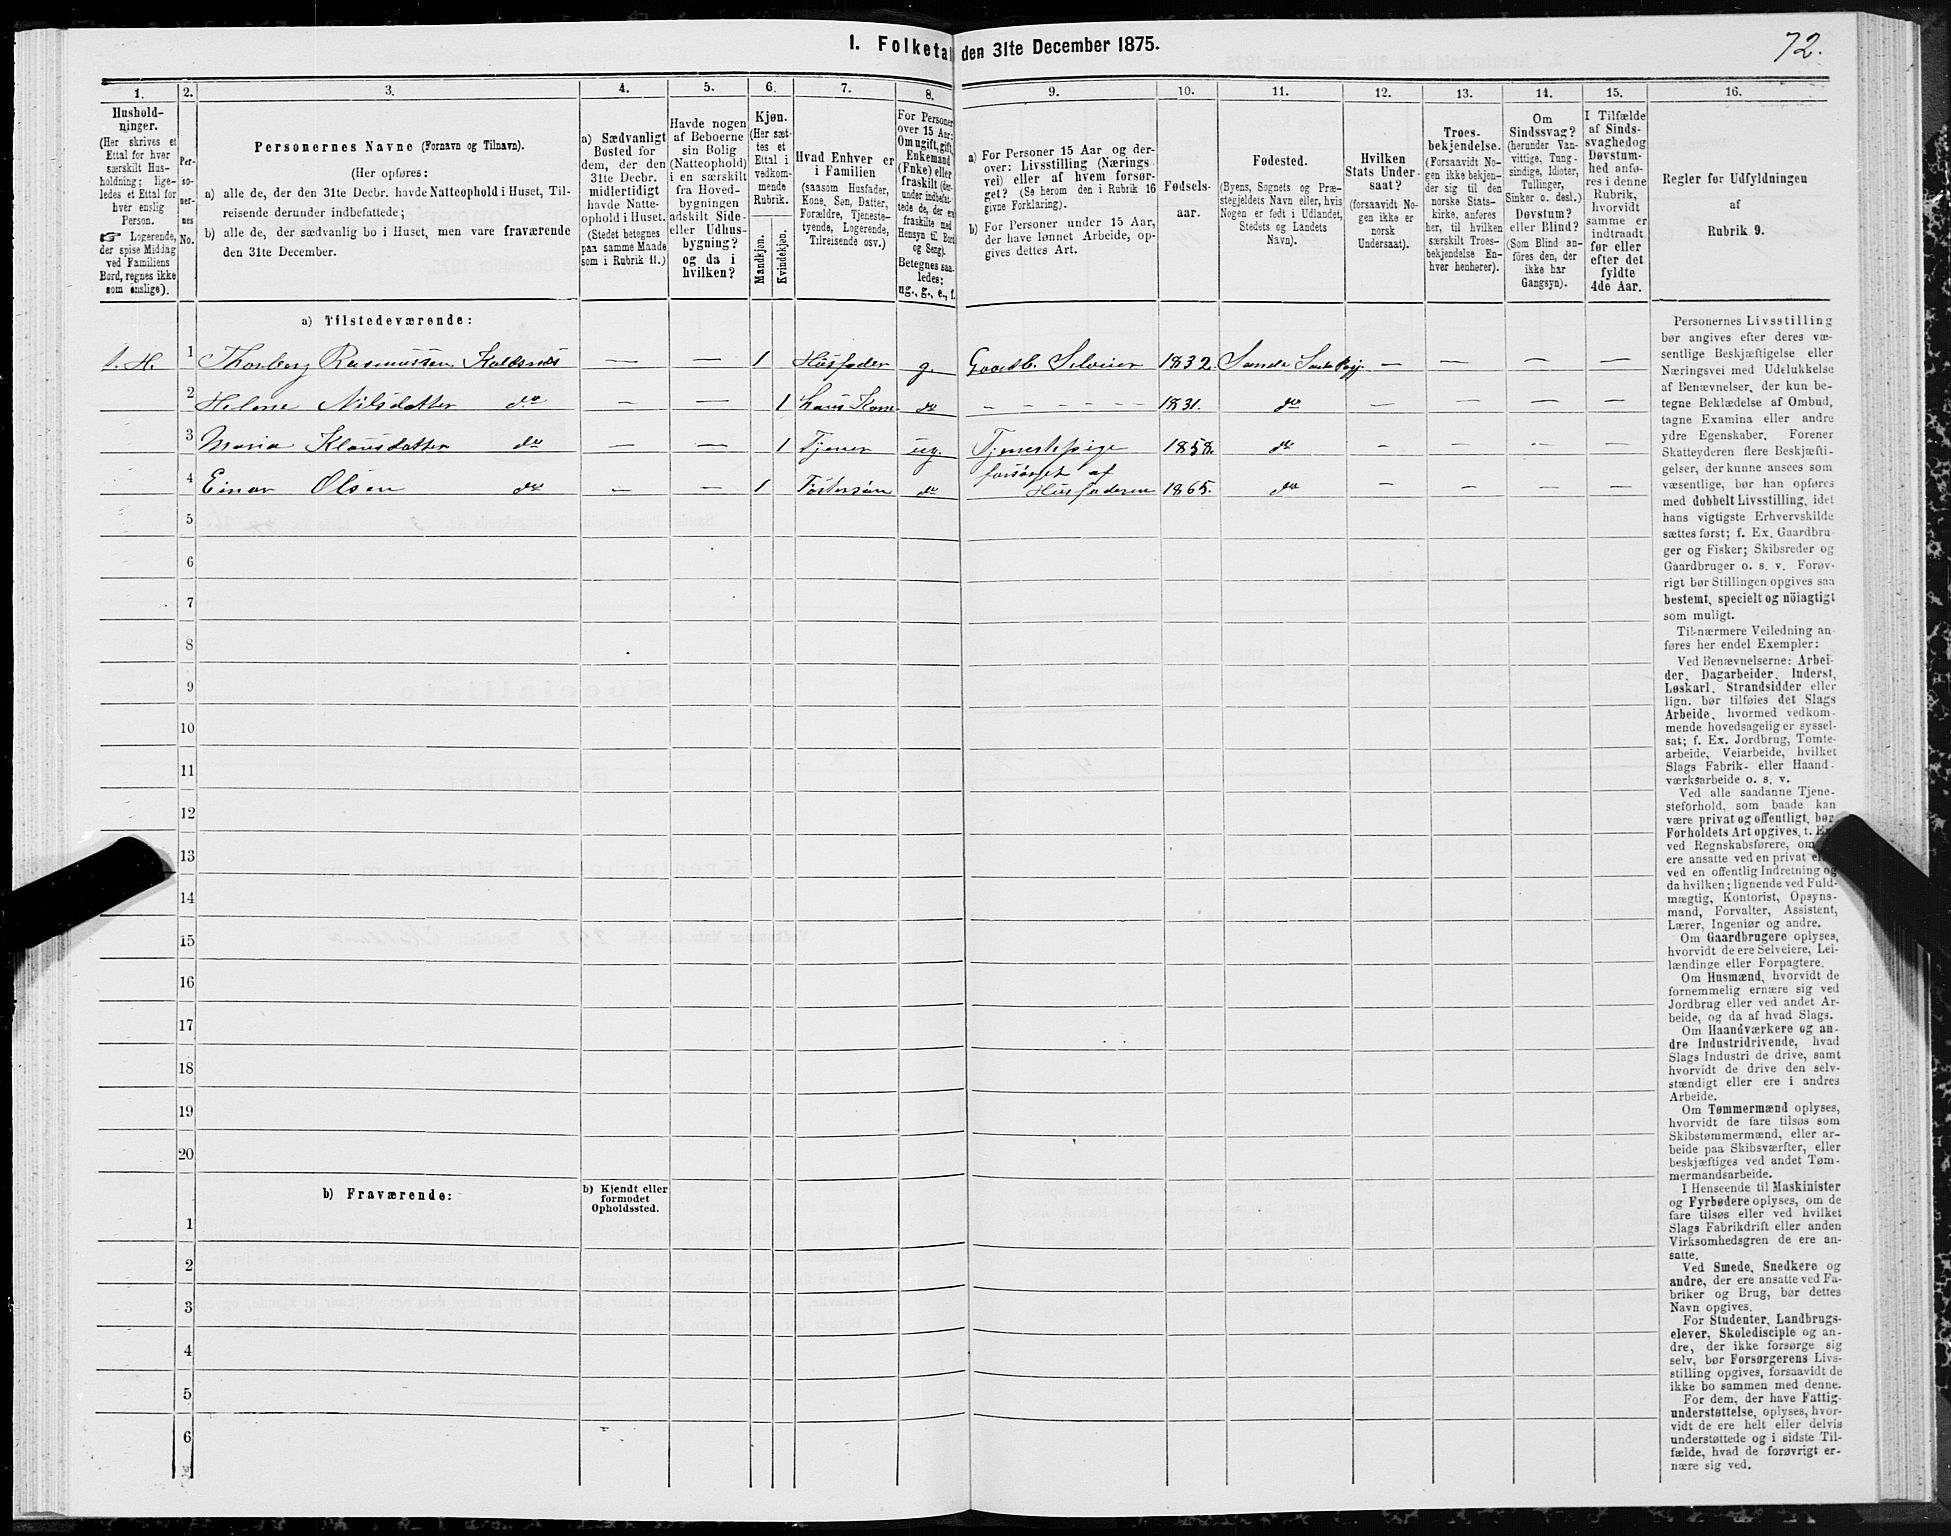 I. Folketal den 31te December 1875.
72.
1. 2. 3. 4. 5. 6. 7. 8. 9. 10. 11. 12. 13. 14. 15. 16.
Hushold-
ninger.
(Her skrives et
Ettal for hver
særskilt Hus-
holdning; lige-
ledes et Ettal for
hver enslig
Person.
☞ Logerende,
der spise Middag
ved Familiens
Bord, regnes ikke
som enslige).
Per-
so-
ner-
nes
No.
Personernes Navne (Fornavn og Tilnavn).
(Her opføres:
a) alle de, der den 31te Decbr. havde Natteophold i Huset, Til-
reisende derunder indbefattede;
b) alle de, der sædvanlig bo i Huset, men vare fraværende
den 31te December.
a) Sædvanligt
Bosted for
dem, der den
31te Decbr.
midlertidigt
havde Natte-
ophold i Huset.
(Stedet betegnes
paa samme Maade
som i Rubrik 11.)
Havde nogen
af Beboerne
sin Bolig
(Natteophold)
i en særskilt
fra Hoved-
bygningen
adskilt Side-
eller Udhus-
bygning?
og da i
hvilken?
Kjøn.
(Her sæt-
tes et
Ettal i
vedkom-
mende
Rubrik.
Mandkjøn.
Kvindekjøn.
Hvad Enhver er
i Familien
(saasom Husfader,
Kone, Søn, Datter,
Forældre, Tjeneste-
tyende, Logerende,
Tilreisende osv.)
For Personer
over 15 Aar:
Om ugift, gift,
Enkemand
(Enke) eller
fraskilt (der-
under indbefat-
tede de, der ere
fraskilte med
Hensyn til Bord
og Seng).
Betegnes saa-
ledes:
ug., g., e., f.
a) For Personer 15 Aar og der-
over: Livsstilling (Nærings
vei) eller af hvem forsør-
get? (Se herom den i Rubrik 16
givne Forklaring).
b) For Personer under 15 Aar,
der have lønnet Arbeide, op-
gives dettes Art.
Fødsels-
aar.
Fødested.
(Byens, Sognets og Præ-
stegjeldets Navn eller, hvis
Nogen er født i Udlandet,
Stedets og Landets
Navn).
Hvilken
Stats Under-
saat?
(forsaavidt No-
gen ikke er
norsk
Undersaat).
Troes-
bekjendelse.
(Forsaavidt No-
gen ikke bekjen-
der sig til den
norske Stats-
kirke, anføres
her, til hvilken
særskilt Troes-
bekjendelse En-
hver henhører).
Om
Sindssvag?
(herunder Van-
vittige, Tung-
sindige, Idioter,
Tullinger,
Sinker o. desl.)
Døvstum?
eller Blind?
(Som Blind an-
føres den, der
ikke har
Gangsyn).
I Tilfælde
af Sinds-
svaghed og
Døvstum-
hed anfø-
res i denne
Rubrik,
hvorvidt
samme er
indtraadt
før eller
efter det
fyldte
4de Aar.
Regler for Udfyldningen
af
Rubrik 9.
a) Tilstedeværende:
1. H. 1 Thorberg Rasmussen Koldsnes — — 1 Husfader g. Gaardb. Selveier 1832. Sande Sande Prgj. — — — —
2 Helene Nilsdatter do 1 hans Kone do - - - - - - 1831. do — — — —
3 Maria Klausdatter do — — 1 Tjener ug. Tjenestepige 1858. do — — — —
4 Einar Olsen do — — 1 Fostersøn do forsørget af Husfaderen 1865. do — — — —
5
6
7
8
9
10
11
12
13
14
15
16
17
18
19
20
b) Fraværende:
b) Kjendt eller
formodet
Opholdssted.
1
2
3
4
5
6
Personernes Livsstilling
bør angives efter deres væ-
sentlige Beskjæftigelse eller
Næringsvei med Udelukkelse
af Benævnelser, der kun be-
tegne Beklædelse af Ombud,
tagne Examina eller andre
ydre Egenskaber. Forener
Skatteyderen flere Beskjæfti-
gelser, der kunne ansees som
væsentlige, bør han opføres
med dobbelt Livsstilling, idet
hans vigtigste Erhvervskilde
sættes først; f. Ex. Gaardbru-
ger og Fisker; Skibsreder og
Gaardbruger o. s. v. Forøv-
rigt bør Stillingen opgives saa
bestemt, specielt og nöiagtigt
som muligt.
Til nærmere Veiledning an-
føres her endel Exempler:
Ved Benævnelserne: Arbei-
der, Dagarbeider, Inderst,
Løskarl, Strandsidder eller
lign. bør tilføies det Slags
Arbeide, hvormed vedkom-
mende hovedsagelig er syssel-
sat; f. Ex. Jordbrug, Tomte-
arbeide, Veiarbeide, hvilket
Slags Fabrik- eller Haand-
værksarbeide o. s. v.
Ved alle saadanne Tjene-
steforhold, som baade kan
være privat og offentligt, bør
Forholdets Art opgives, t. Ex.
ved Regnskabsførere, om
ere ansatte ved en privat
ved en offentlig Indretning og
da hvilken; lignende ved Fuld-
mægtig, Kontorist, Opsyns-
mand, Forvalter, Assistent,
Lærer, Ingeniør og andre.
Om Gaardbrugere oplyses,
hvorvidt de ere Selveiere, Lei-
lændinge eller Forpagtere.
Om Husmænd, hvorvidt de
fornemmelig ernære sig ved
Jordbrug eller ved andet Ar-
beide, og da af hvad Slags.
Om Haandværkere og an-
dre Industridrivende, hvad
Slags Industri de drive, samt
hvorvidt de drive den selv-
stændigt eller ere i andres
Arbeide.
Om Tømmermænd oplyses,
hvorvidt de fare tilsøs som
Skibstømmermænd, eller ar-
beide paa Skibsværfter, eller
beskjæftiges ved andet Tøm-
mermandsarbeide.
I Henseende til Maskinister
og Fyrbødere oplyses, om de
fare tilsøs eller ved hvilket
Slags Fabrikdrift eller anden
Virksomhedsgren de ere an-
satte.
Ved Smede, Snedkere og
andre, der ere ansatte ved Fa-
briker og Brug, bør dettes
Navn opgives.
For Studenter, Landbrugs-
elever, Skoledisciple og an-
dre, der ikke forsørge sig
selv, bør Forsørgerens Livs-
stilling opgives, forsaavidt de
ikke bo sammen med denne.
For dem, der have Fattig-
understøttelse, oplyses, hvor-
vidt de ere helt eller delvis
understøttede og i sidste Til-
fælde, hvad de forøvrigt er-
nære sig ved.